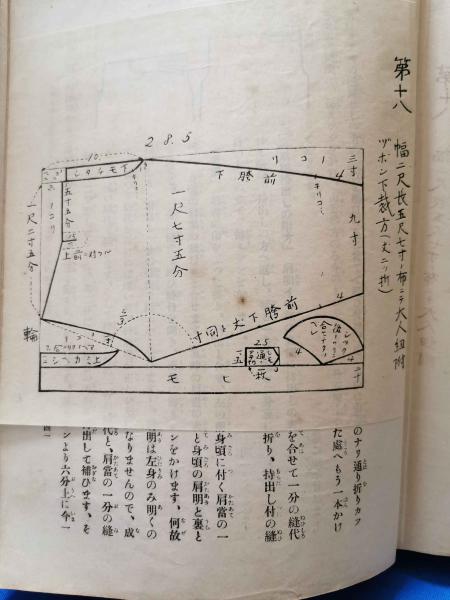 第十八
幅二尺長五尺七寸ノ布ニテ大人組附
ヅボン下裁方(丈二ツ折)
28.5
10
三寸
ノコリ
前膀下
4
キリコミ
九寸
一尺七寸五分
五寸五分
ノコリ
一尺二寸五分
輪
前膀下丈と同寸
4
4
4
2.5
五
ヒモ
二寸
のナリ通り折りカツ
た處へもう一本かけ
を合せて一分の縫代
折り、持出し付の縫
身頃に付く肩當の一
と身頃の肩明と裏と
ンをかけます、何故
明は左身のみ明くの
なりませんので、成
代と、肩當の一分の縫
出して補ひます、そ
ンより六分上に今一